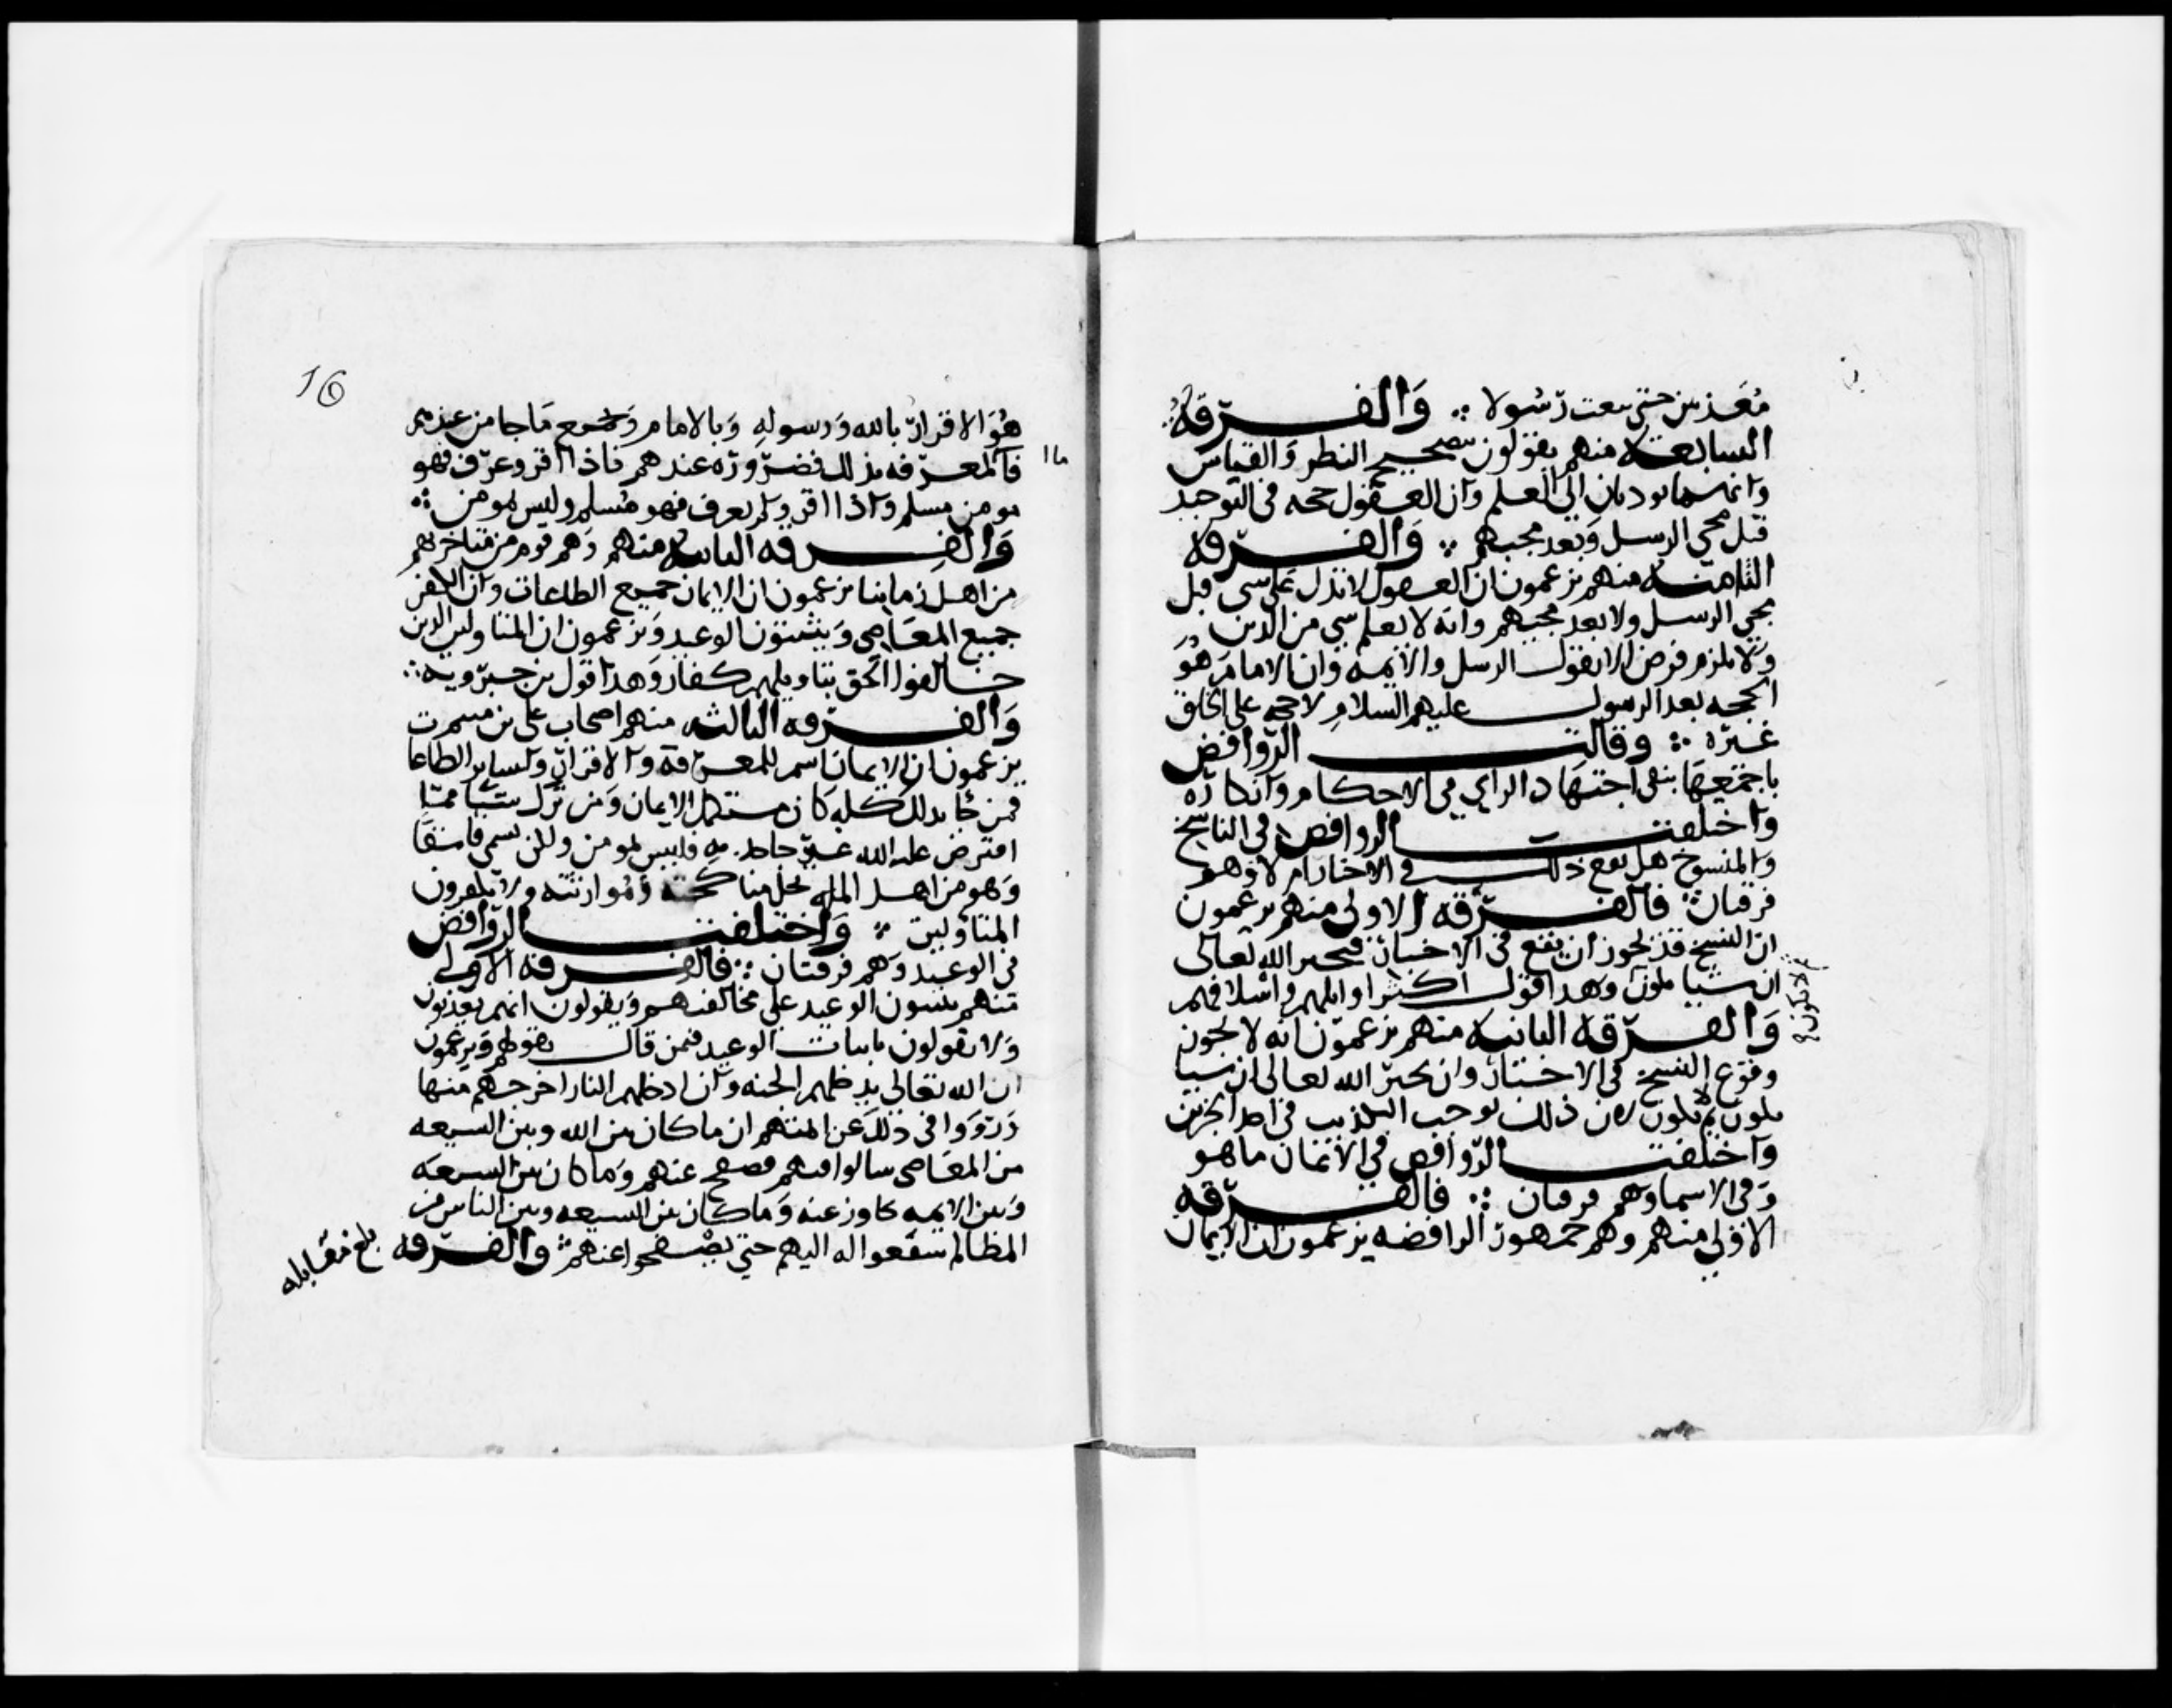 معذبين حتى نبعث رسولا ∴ والفرقة
السابعة منهم يقولون بتصحيح النظر والقياس
وانهما يوديان الى العلم وان العقول حجه في التوحيد
قبل مجي الرسل وبعد مجيهم ∴ والفرقة
الثامنة منهم يزعمون ان العقول لا تدل على شي قبل
مجي الرسل ولا بعد مجيهم وانه لا يعلم شي من الدين
ولا يلزم فرض الا بقول الرسل والايمه وان الامام هو
الحجه بعد الرسول عليهم السلام لا حجه على الخلق
غيره ∴ وقالت الروافض
باجمعها بنفي اجتهاد الراي في الاحكام وانكاره
واختلفت الروافض في الناسخ
والمنسوخ هل يقع ذلك في الاخبار ام لا وهم
فرقتان ∴ فالفرقة الاولى منهم يزعمون
ان النسخ قد يجوز ان يقع في الاخبار فيخبر الله تعالى
ان شيا يكون وهذا قول اكثر اوايلهم واسلافهم
ثم لا يكون
والفرقة الثانية منهم يزعمون انه لا يجوز
وقوع النسخ في الاخبار وان يخبر الله تعالى ان شيا
يكون ثم لا يكون لان ذلك يوجب التكذيب في احد الخبرين
واختلفت الروافض في الايمان ما هو
وفي الاسما وهم فرقتان ∴ فالفرقة
الاولى منهم وهم جمهور الرافضه يزعمون ان الايمان
16
هو الاقرار بالله ورسوله وبالامام وبجميع ما جا من عندهم
فالمعرفه بذلك فضروره عندهم فاذا اقر وعرف فهو
مومن مسلم واذا اقر ولم يعرف فهو مسلم وليس بمومن ∴
والفرقه الثانية منهم وهم قوم من متاخريهم
من اهل زماننا يزعمون ان الايمان جميع الطاعات وان الكفر
جميع المعاصي ويثبتون الوعيد ويزعمون ان المتاولين الذين
خالفوا الحق بتاويلهم كفار وهذا قول بن جبرويه ∴
والفرقه الثالثه منهم اصحاب علي بن ميسم
يزعمون ان الايمان اسم للمعرفة والاقرار ولساير الطاعا
فمن جا بذلك كله كان مستكمل الايمان ومن ترك شيا مما
افترض عليه الله غير جاحد به فليس بمومن ولكن يسمى فاسقا
وهو من اهل المله تحل مناكحته وموارثته ولا يكفرون
المتاولين ∴ واختلفت الروافض
في الوعيد وهم فرقتان ∴ فالفرقة الاولى
منهم يثبتون الوعيد على مخالفيهم ويقولون انهم يعذبون
ولا يقولون باثبات الوعيد فيمن قال بقولهم ويزعمون
ان الله تعالى يدخلهم الجنه وان ادخلهم النار اخرجهم منها
ورووا في ذلك عن ايمتهم ان ما كان بين الله وبين الشيعه
من المعاصي سالوا فيهم فصفح عنهم وما كان بين الشيعه
وبين الايمه تجاوز عنه وما كان بين الشيعه وبين الناس من
المظالم شفعوا له اليهم حتى يصفحوا عنهم ∴ والفرقه
بلغ مقابله